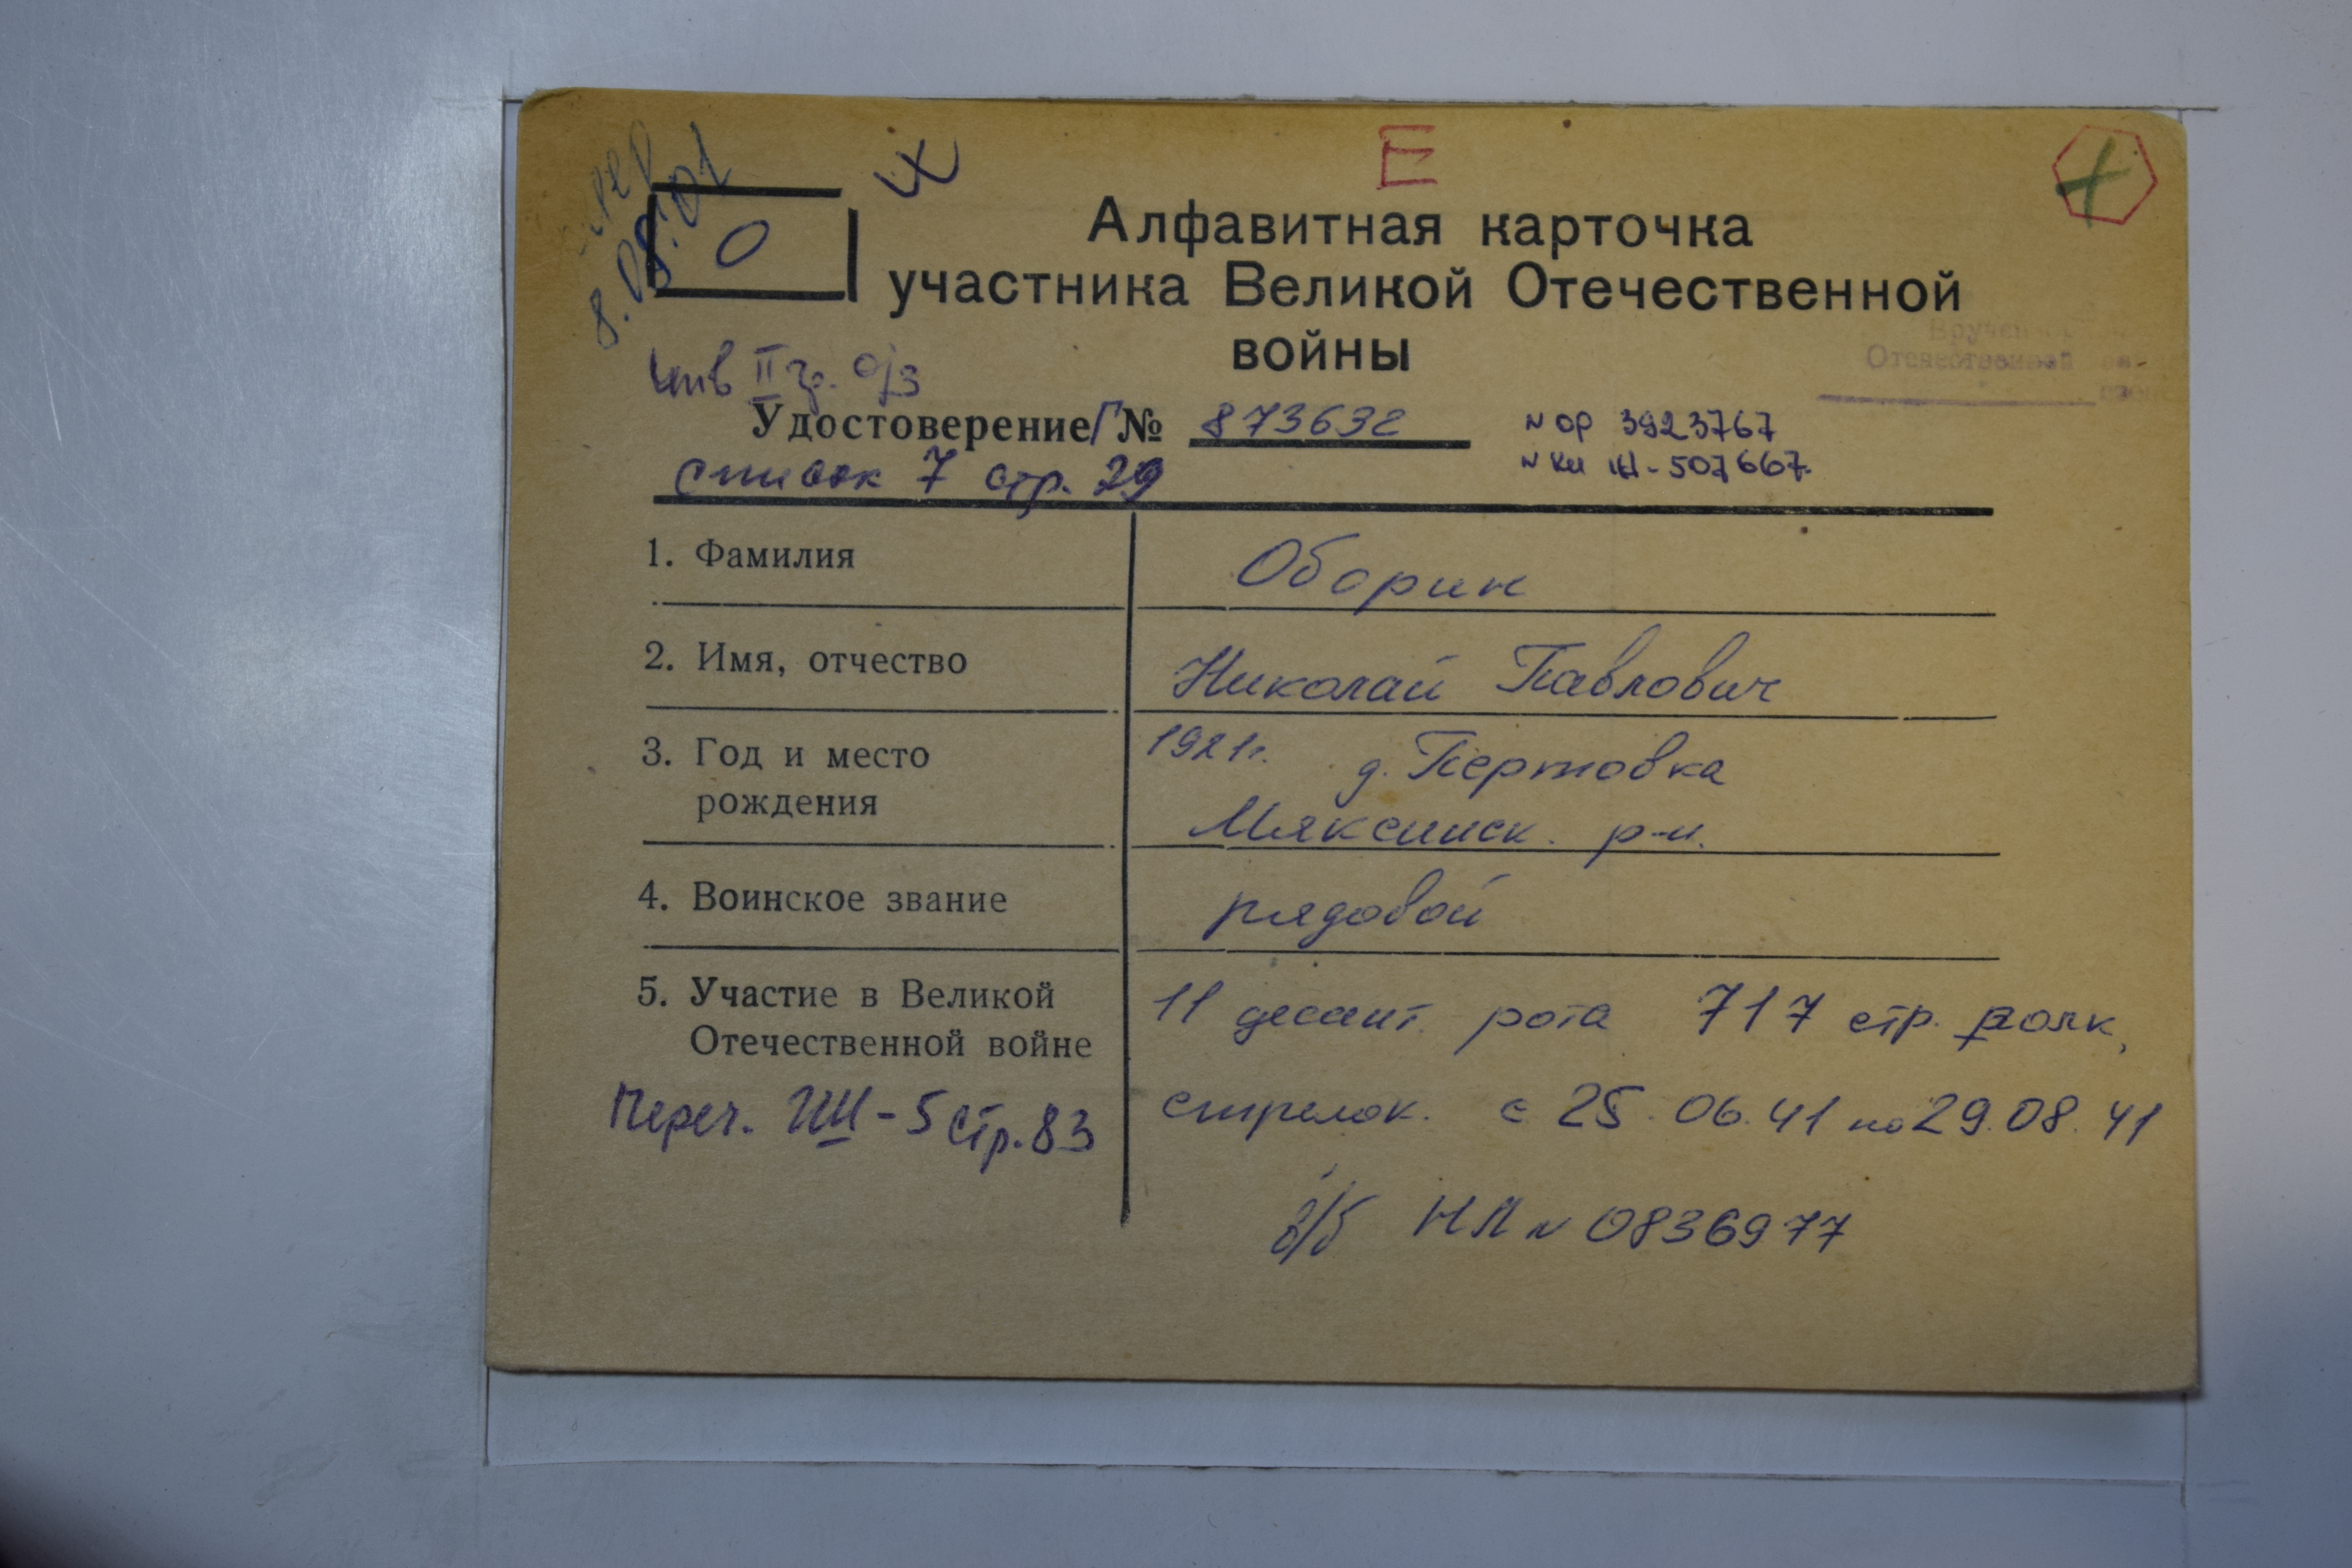 умер
8.05.01
О
Е
Алфавитная карточка
участника Великой Отечественной
войны
Вручен
Отечественной
инв II гр. о/з
Удостоверение Г №
873632
№ ор 3923767
№ кн 507667
список 7 стр. 29
1. Фамилия
Оборин
2. Имя, отчество
Николай Павлович
3. Год и место
рождения
1921г. д. Пертовка
Мяксинск. р-н.
4. Воинское звание
рядовой
5. Участие в Великой
Отечественной войне
11 десант. рота 717 стр. полк,
стрелок. с 25.06.41 по 29.08.41
Переч. стр. 83
в/б НЛ № 0836977